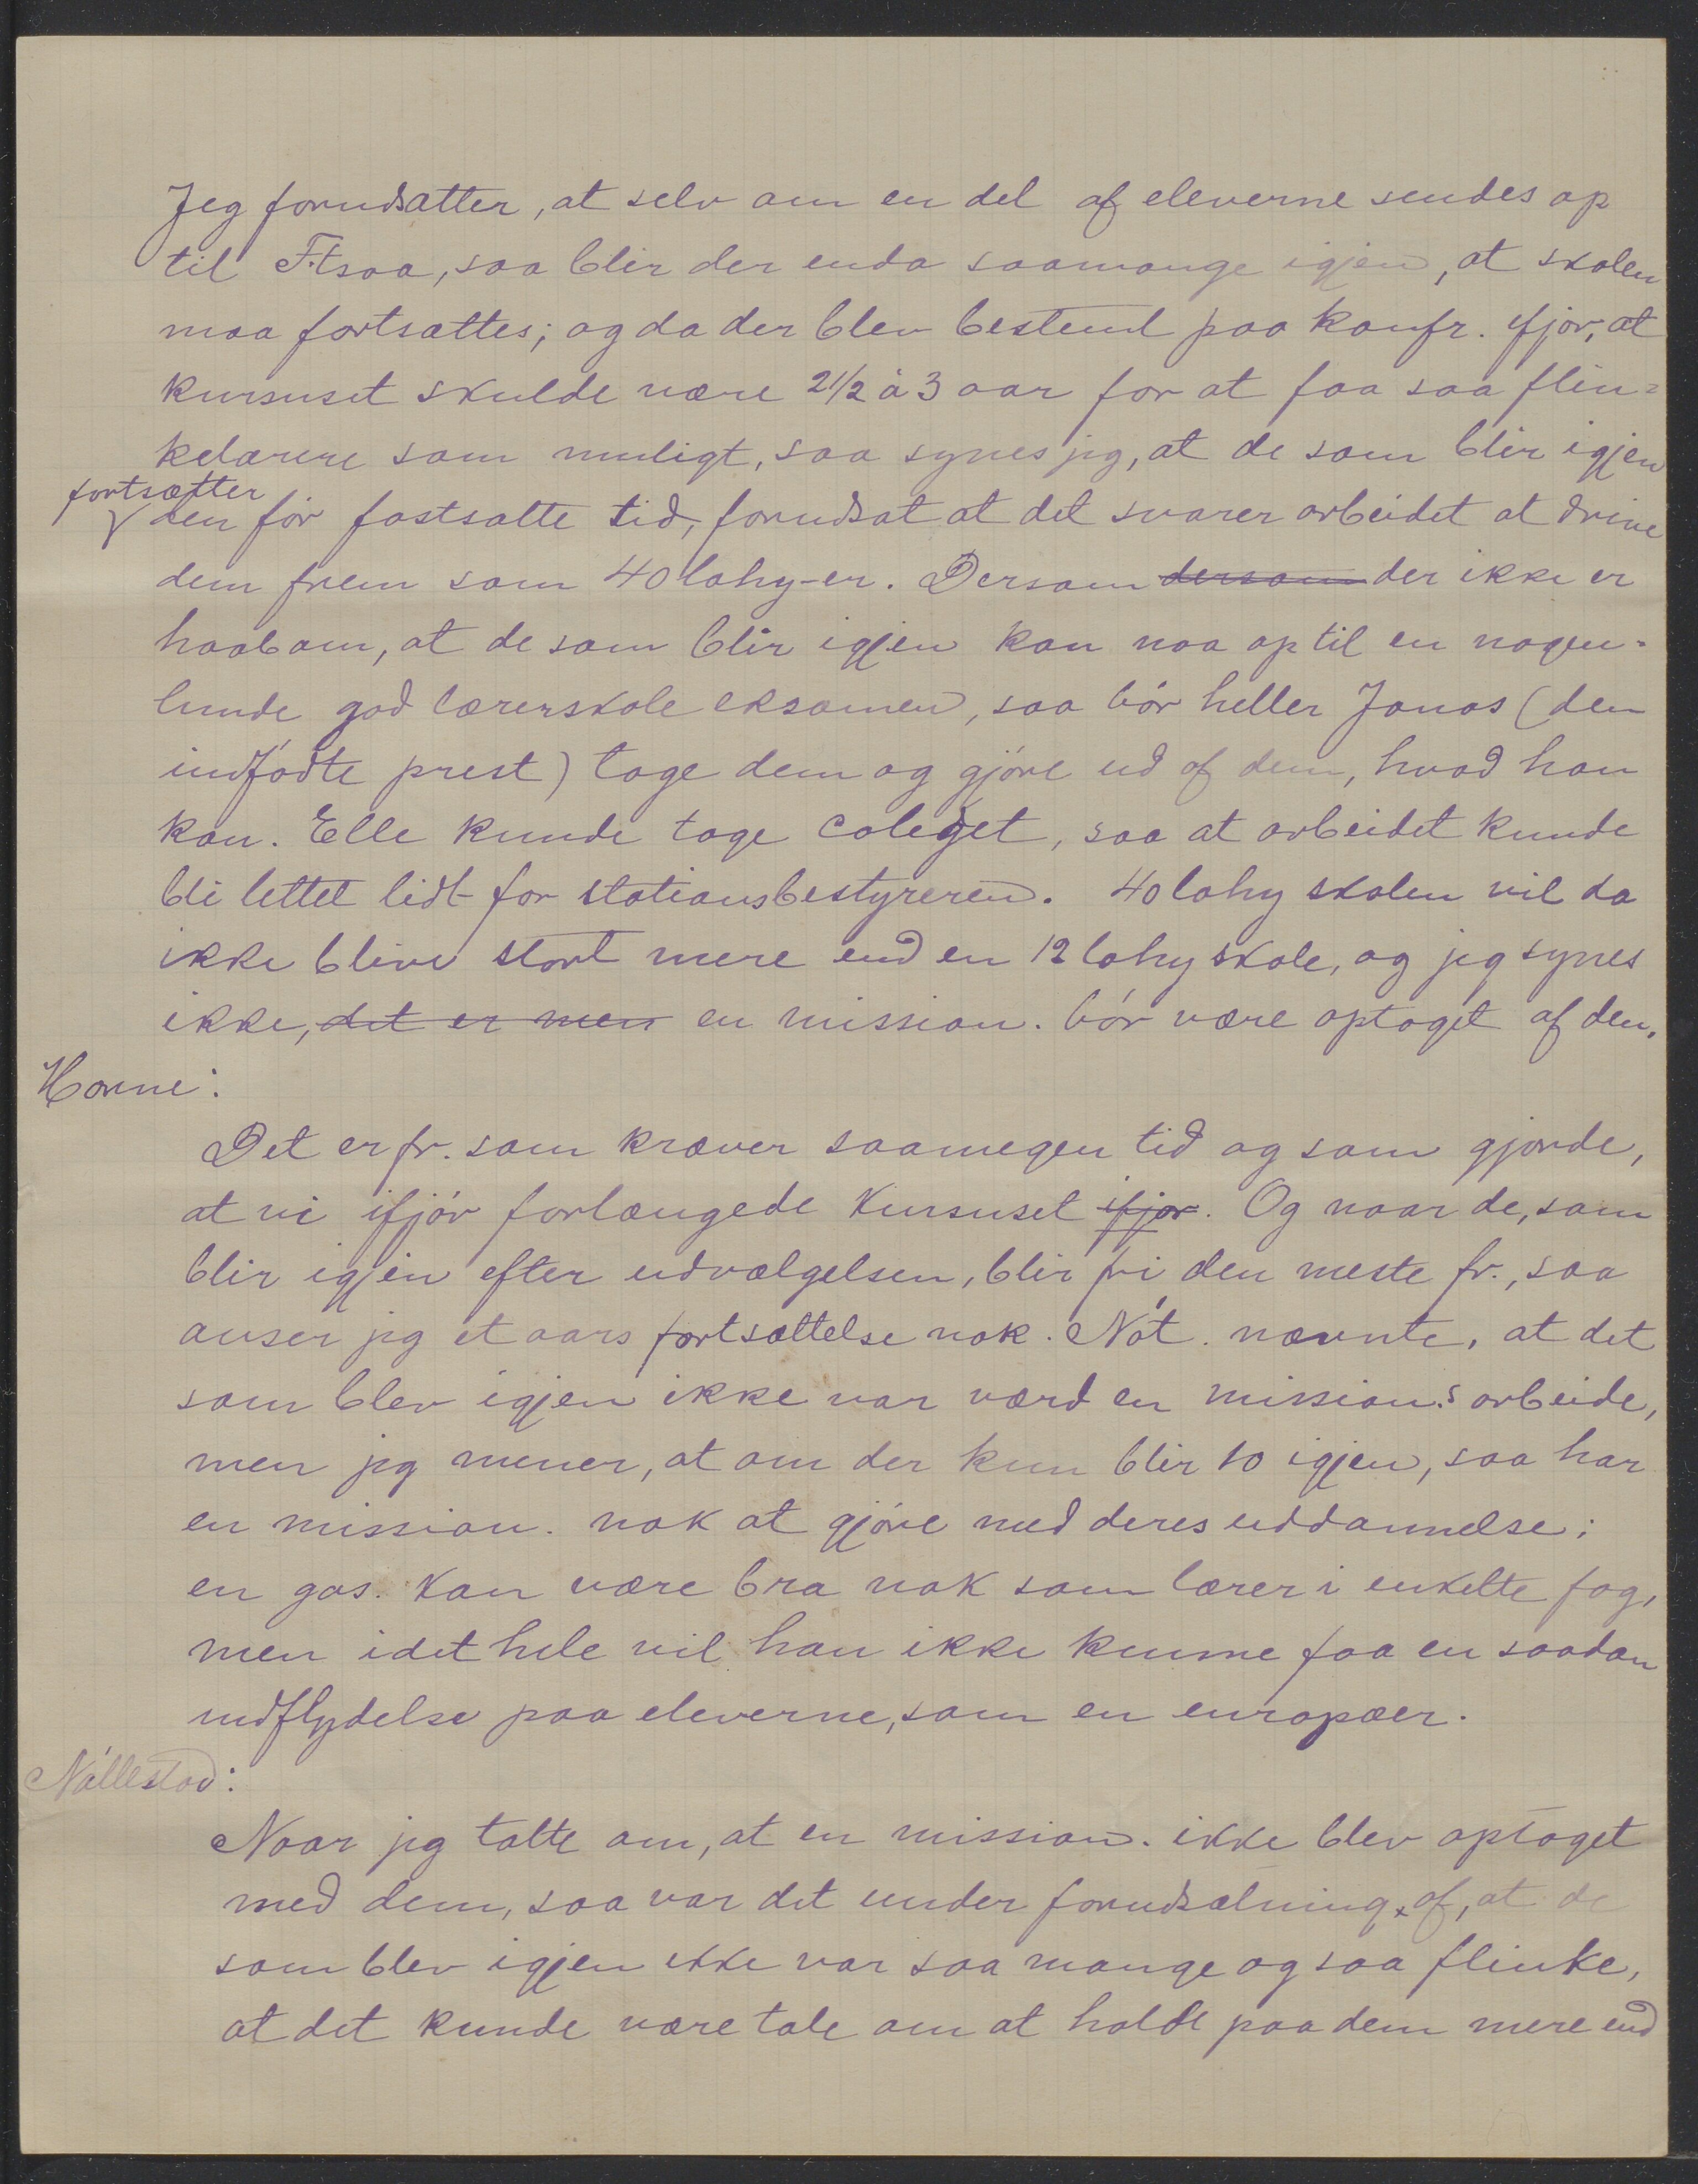 Jeg forudsætter, at selv om en del af eleverne sendes op
til F.tsoa, saa blir der enda saamange igjen, at skolen
maa fortsættes; og da der blev bestemt paa konfr. ifjor, at
kursuset skulde være 2 1/2 à 3 aar for at faa saa flin=
ke lærere som muligt, saa synes jeg, at de som blir igjen
fortsætter
den før fastsatte tid, forudsat at det svarer arbeidet at drive
dem frem som 40 lahy-er. Dersom dersom der ikke er
haab om, at de som blir igjen kan naa op til en nogen=
lunde god lærerskole eksamen, saa bør heller Jonas (den
indfødte prest) tage dem og gjøre ud af dem, hvad han
kan. Elle kunde tage coleget, saa at arbeidet kunde
bli lettet lidt for stationsbestyreren. 40 lahy skolen vil da
ikke blive stort mere end en 12 lahy skole, og jeg synes
ikke, det er men en mission. bør være optaget af den.
Horne:
Det er fr. som kræver saamegen tid og som gjorde,
at vi ifjør forlængede kursuset ifjor. Og naar de, som
blir igjen efter udvælgelsen, blir fri den meste fr., saa
anser jeg et aars fortsættelse nok. Nøt. nævnte, at det
som blev igjen ikke var værd en mission.s arbeide,
men jeg mener, at om der kun blir 10 igjen, saa har
en mission. nok at gjøre med deres uddannelse;
en gas. kan være bra nok som lærer i enkelte fag,
men i det hele vil han ikke kunne faa en saadan
indflydelse paa eleverne, som en europæer.
Nøllestad:
Naar jeg talte om, at en mission. ikke blev optaget
med dem, saa var det under forudsætning af, at de
som blev igjen ikke var saa mange og saa flinke,
at det kunde være tale om at holde paa dem mere end